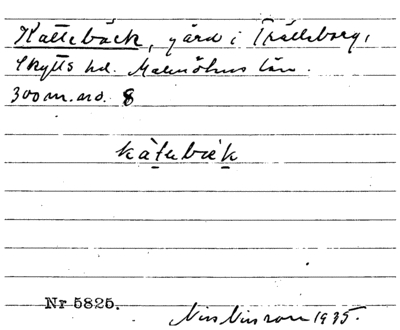 Kattebäck, gård i Trälleborg,
Skytts hd. Malmöhus län.
300 m. n.o. 8
Nr 5825.
Nils Nilsson 1935.